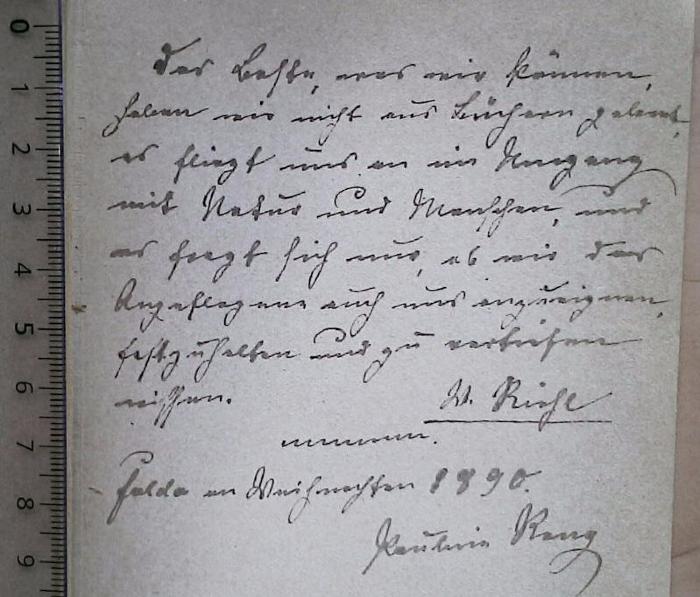 0
1
2
3
4
5
6
7
8
9
Das Beste, was wir können,
haben wir nicht aus Büchern gelernt,
es fliegt uns an im Umgang
mit Natur und Menschen, und
es fragt sich nur, ob wir das
Angeflogene auch uns anzueignen,
festzuhalten und zu vertiefen
wissen.
W. Riehl
Fulda an Weihnachten 1890.
Pauline